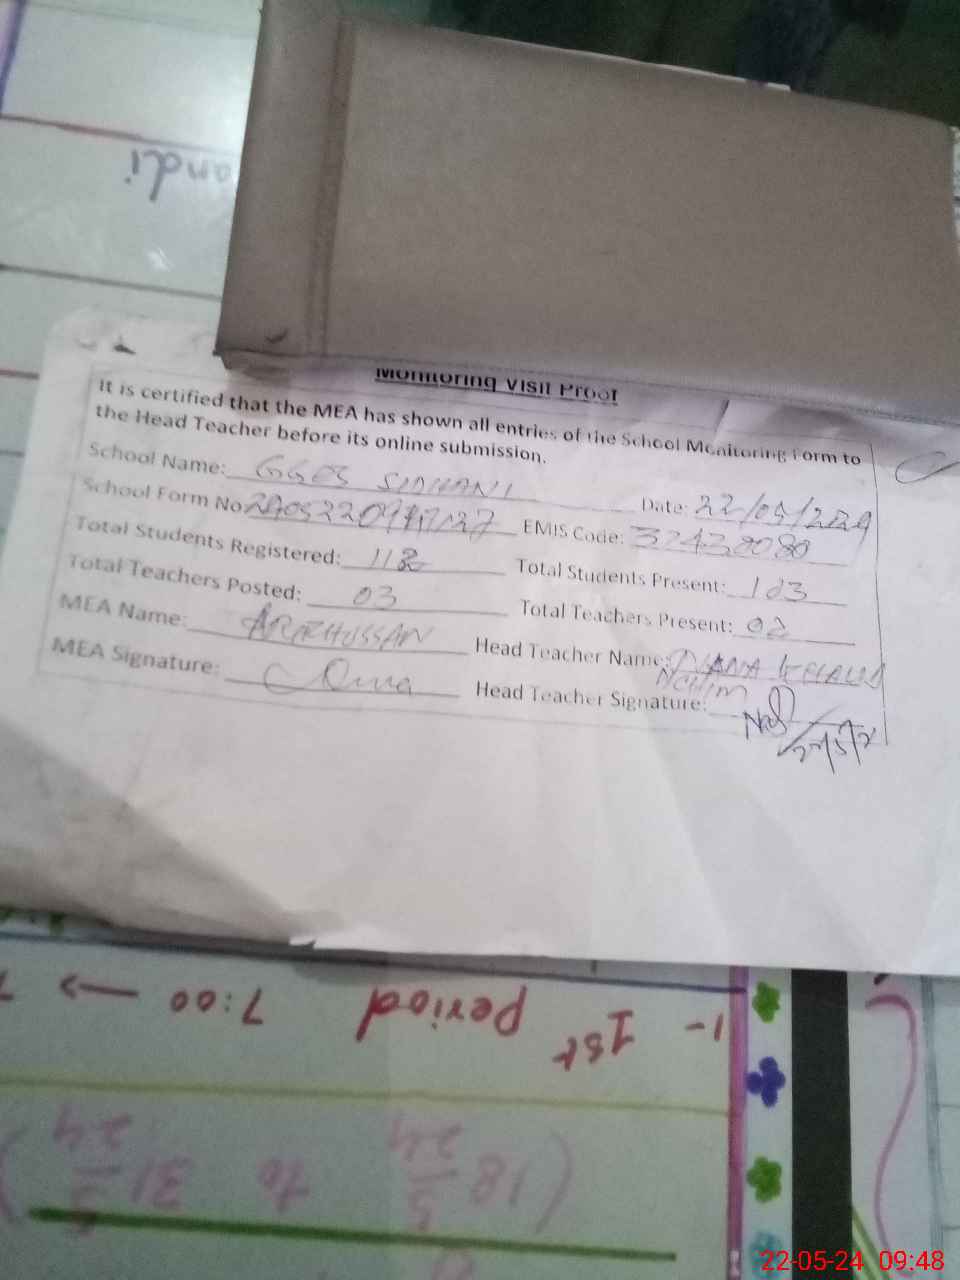 andi
Monitoring Visit Proof
It is certified that the MEA has shown all entries of the School Monitoring Form to
the Head Teacher before its online submission.
School Name: GGES SIDHANI Date: 22/05/2024
School Form No EMIS Code:
Total Students Registered: 112 Total Students Present: 103
Total Teachers Posted: 03 Total Teachers Present: 02
MEA Name: Head Teacher Name:
MEA Signature: Head Teacher Signature:
1- 1st period 7:00 →
(18 5 24 to 31 5 24)
22-05-24 09:48